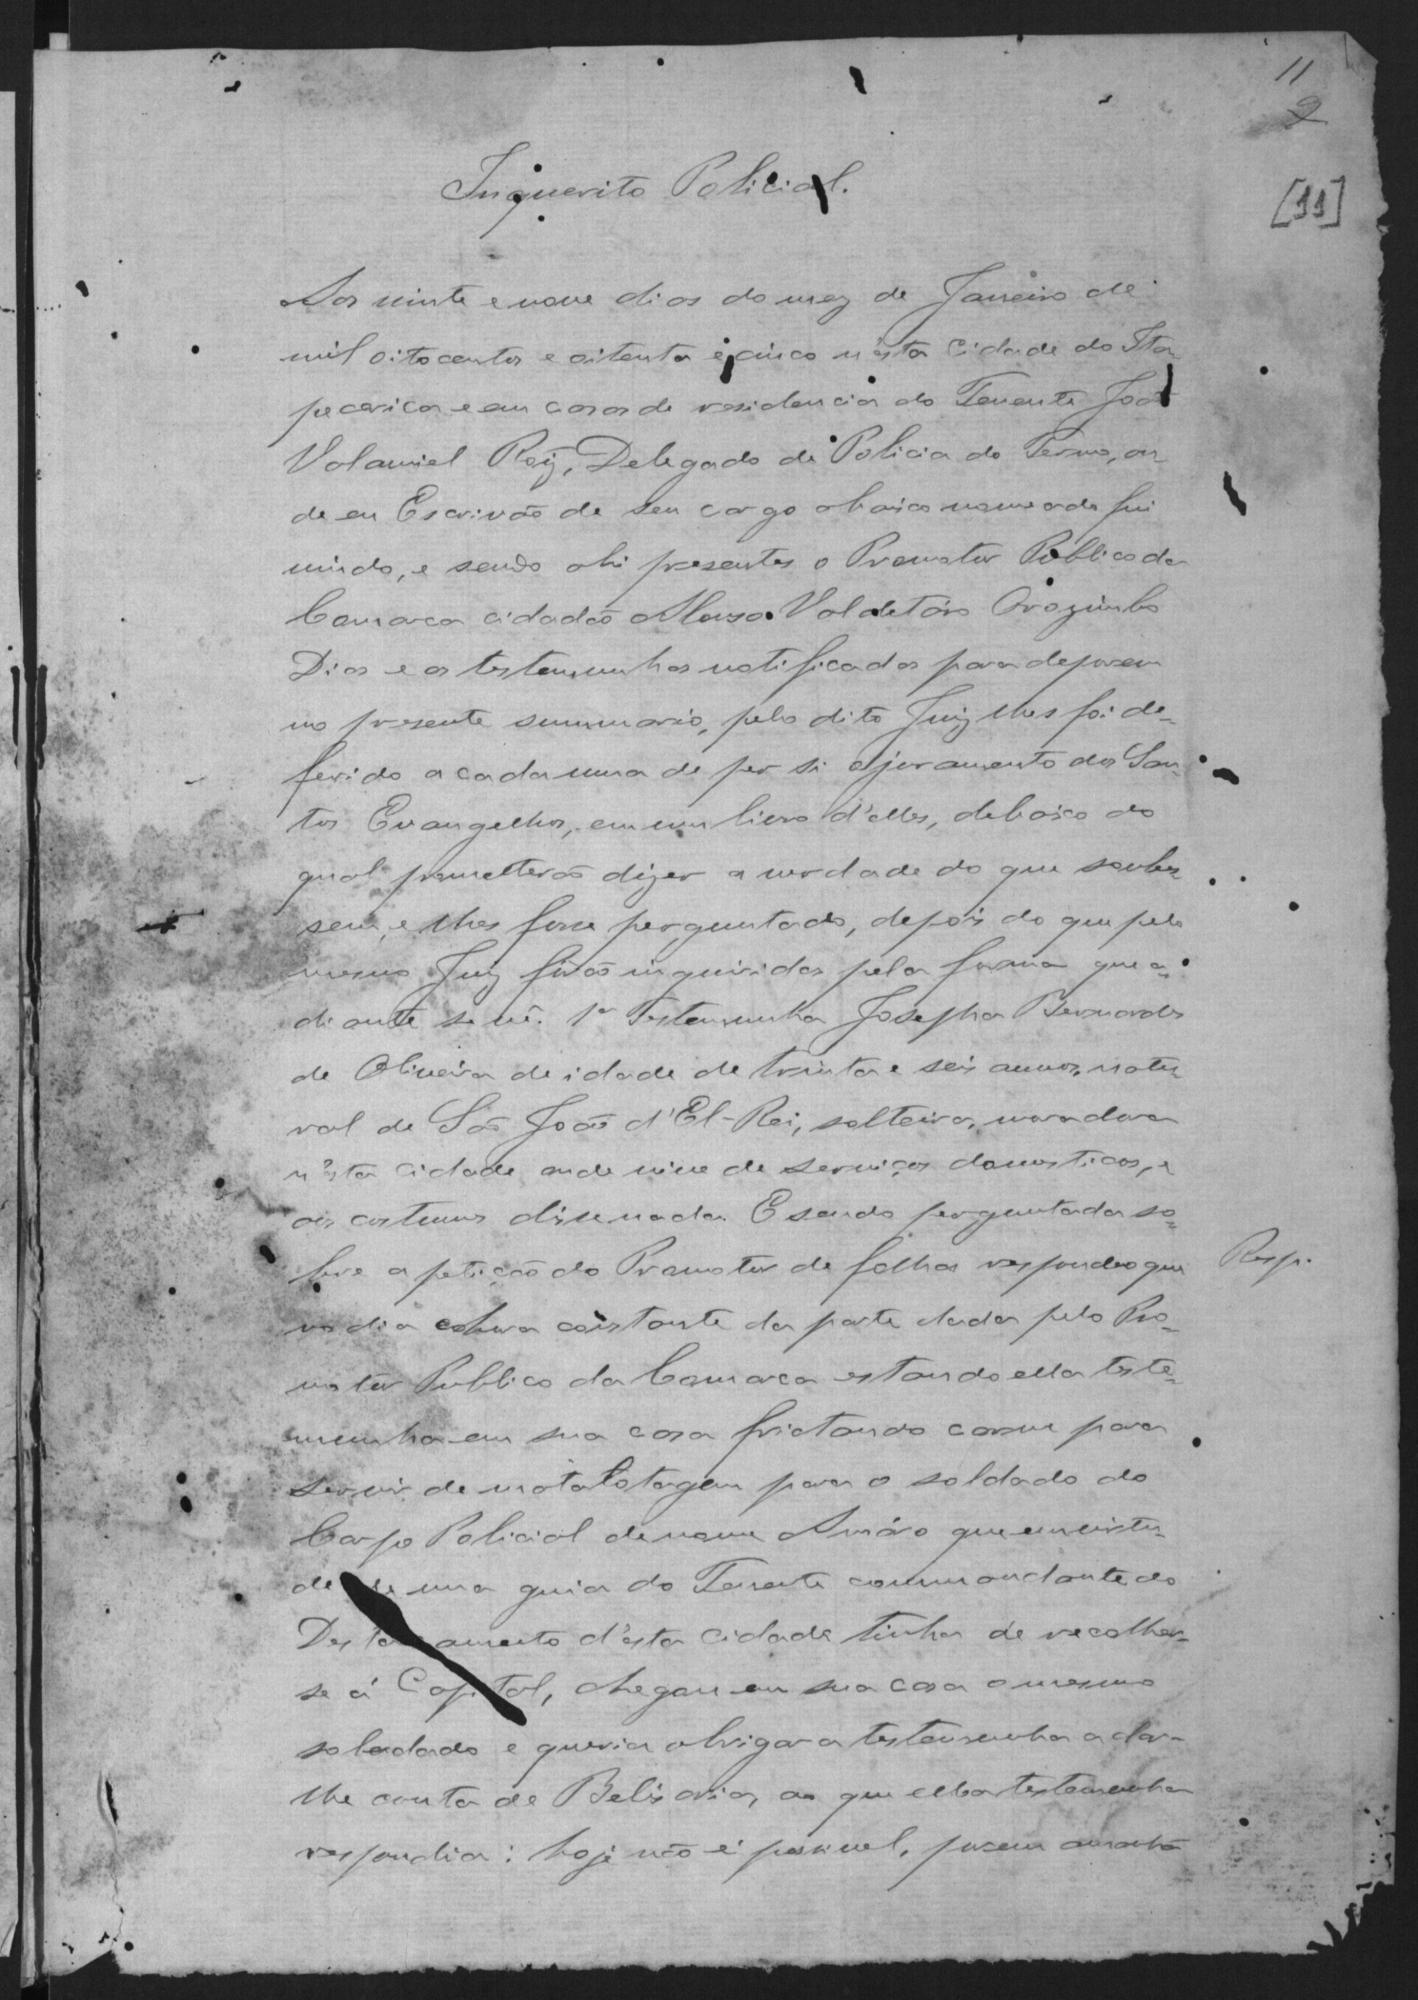 11
2
[11]
Inquerito Policial.
Aos vinte e nove dias do mez de Janeiro de
mil oitocentos e oitenta e cinco n'esta Cidade do Ita-
pecerica e em casa de residencia do Tenente João
Valamiel Roiz, Delegado de Policia do Termo, on-
de eu Escrivão de seu cargo abaixo nomeado fui
vindo, e sendo ahi presentes o Promotor Publico da
Comarca cidadão Valdetáro Orozimbo
Dias e as testemunhas notificadas para deporem
no presente summario, pelo dito Juiz lhes foi de-
ferido a cada uma de per si o juramento dos San-
tos Evangelhos, em um livro d'elles, debaixo do
qual prometterão dizer a verdade do que soubes-
sem, e lhes fosse perguntado, depois do que pelo
mesmo Juiz forão inquiridas pela forma que a-
diante se vê. 1ª Testemunha Josepha Bernardes
de Oliveira de idade de trinta e seis annos, natu-
ral de São João d'El-Rei, solteira, moradora
n'esta cidade onde vive de serviços domesticos, e
aos costumes disse nada. E sendo perguntada so-
bre a petição do Promotor de folhas respondeo que
Resp.
no dia e hora constante da parte dada pelo Pro-
motor Publico da Comarca estando ella teste-
munha em sua casa frictando carne para
servir de matalotagem para o soldado do
Corpo Policial de nome Amáro que em virtu-
de de uma guia do Tenente commandante do
Destacamento d'esta cidade tinha de recolher-
se á Capital, chegou em sua casa o mesmo
soldado e queria obrigar a testemunha a dar-
lhe conta de Belisaria, ao que ella testemunha
respondia: hoje não é possivel, porem amanhã